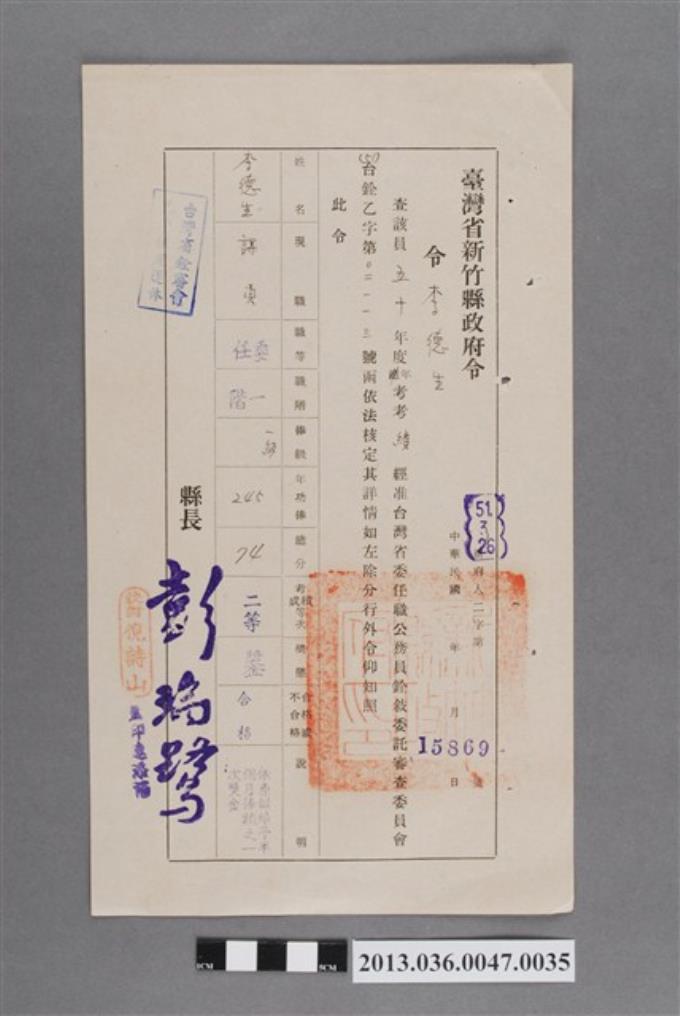 臺灣省新竹縣政府令
令 李德生
51.3.26
府人二字第15869號
中華民國 年 月 日
查該員五十年度年考考績經准台灣省委任職公務員銓敍委託審查委員會
(51)台銓乙字第 號函依法核定其詳情如左除分行外令仰知照
此令
姓名 李德生
現職 課員
職等 委任
職階 一階
俸級 一級
年功俸 245
總分 74
考績等次 二等
獎懲 獎金
合格或不合格 合格
說明
次獎金
縣長 彭瑞鷺
台灣省銓審會
2013.036.0047.0035